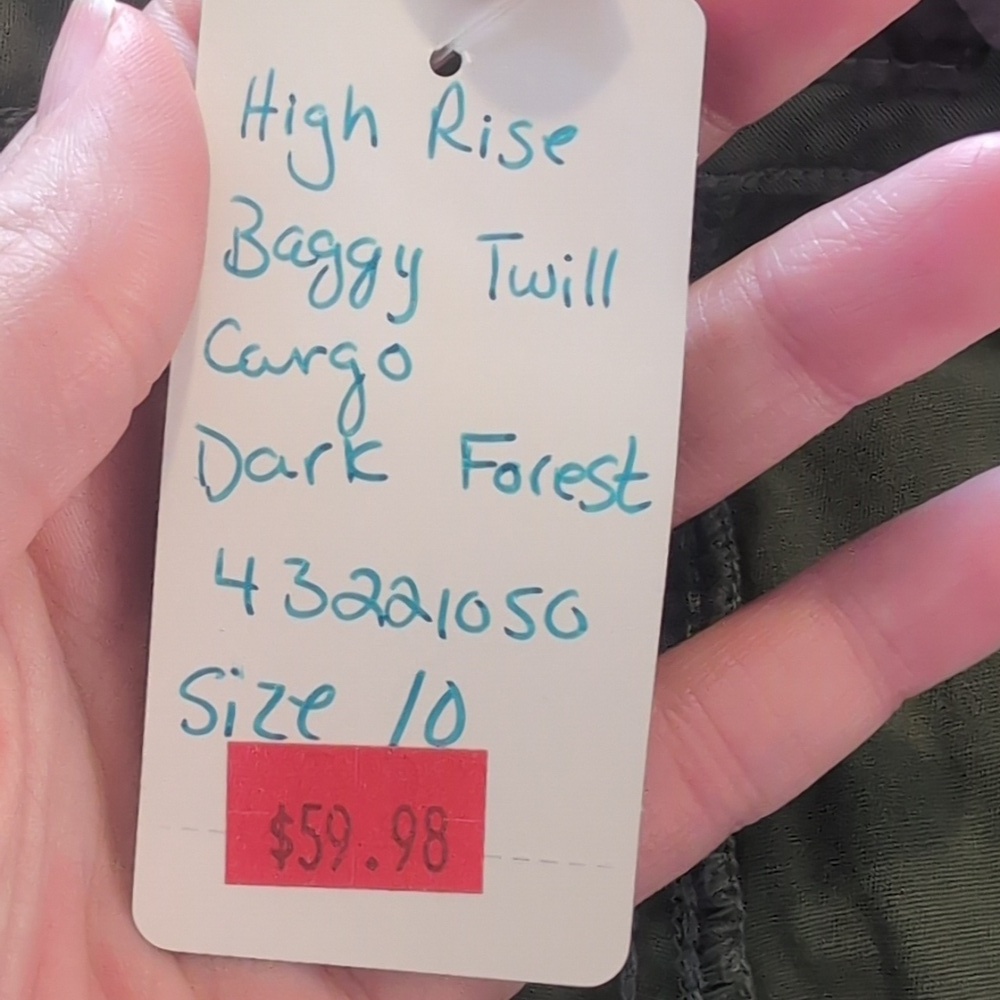 High Rise
Baggy Twill
Cargo
Dark Forest
43221050
Size 10
$59.98